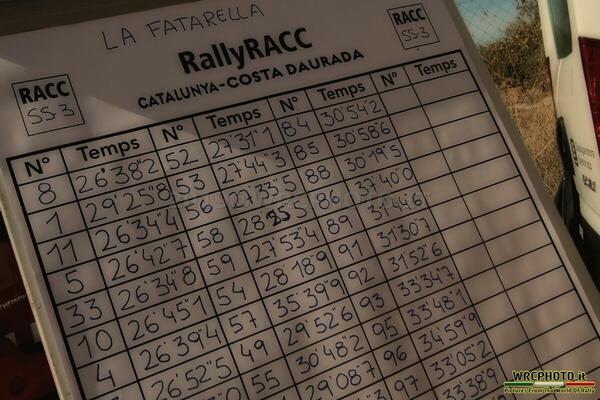 LA FATARELLA
RallyRACC
CATALUNYA-COSTA DAURADA
RACC
SS-3
RACC
SS-3
N° Temps N° Temps N° Temps N° Temps
8 26'38"2 52 27'31"1 84 30'54"2
1 29'25"8 53 27'44"3 85 30'58"6
11 26'34"4 56 88 30'19"5
5 26'42"7 58 86 37'40"0
33 26'34"8 59 27'53"4 89 31'44"6
10 26'45"1 54 28'18"9 91 31'30"7
4 26'39"4 57 35'39"9 92 31'52"6
26'52"5 49 29'52"6 93 33'34"7
55 30'48"2 95 33'48"1
29'08"7 96 34'59"9
97 33'05"2
33'38"9
WRCPHOTO.it
Pictures From The World Of Rally